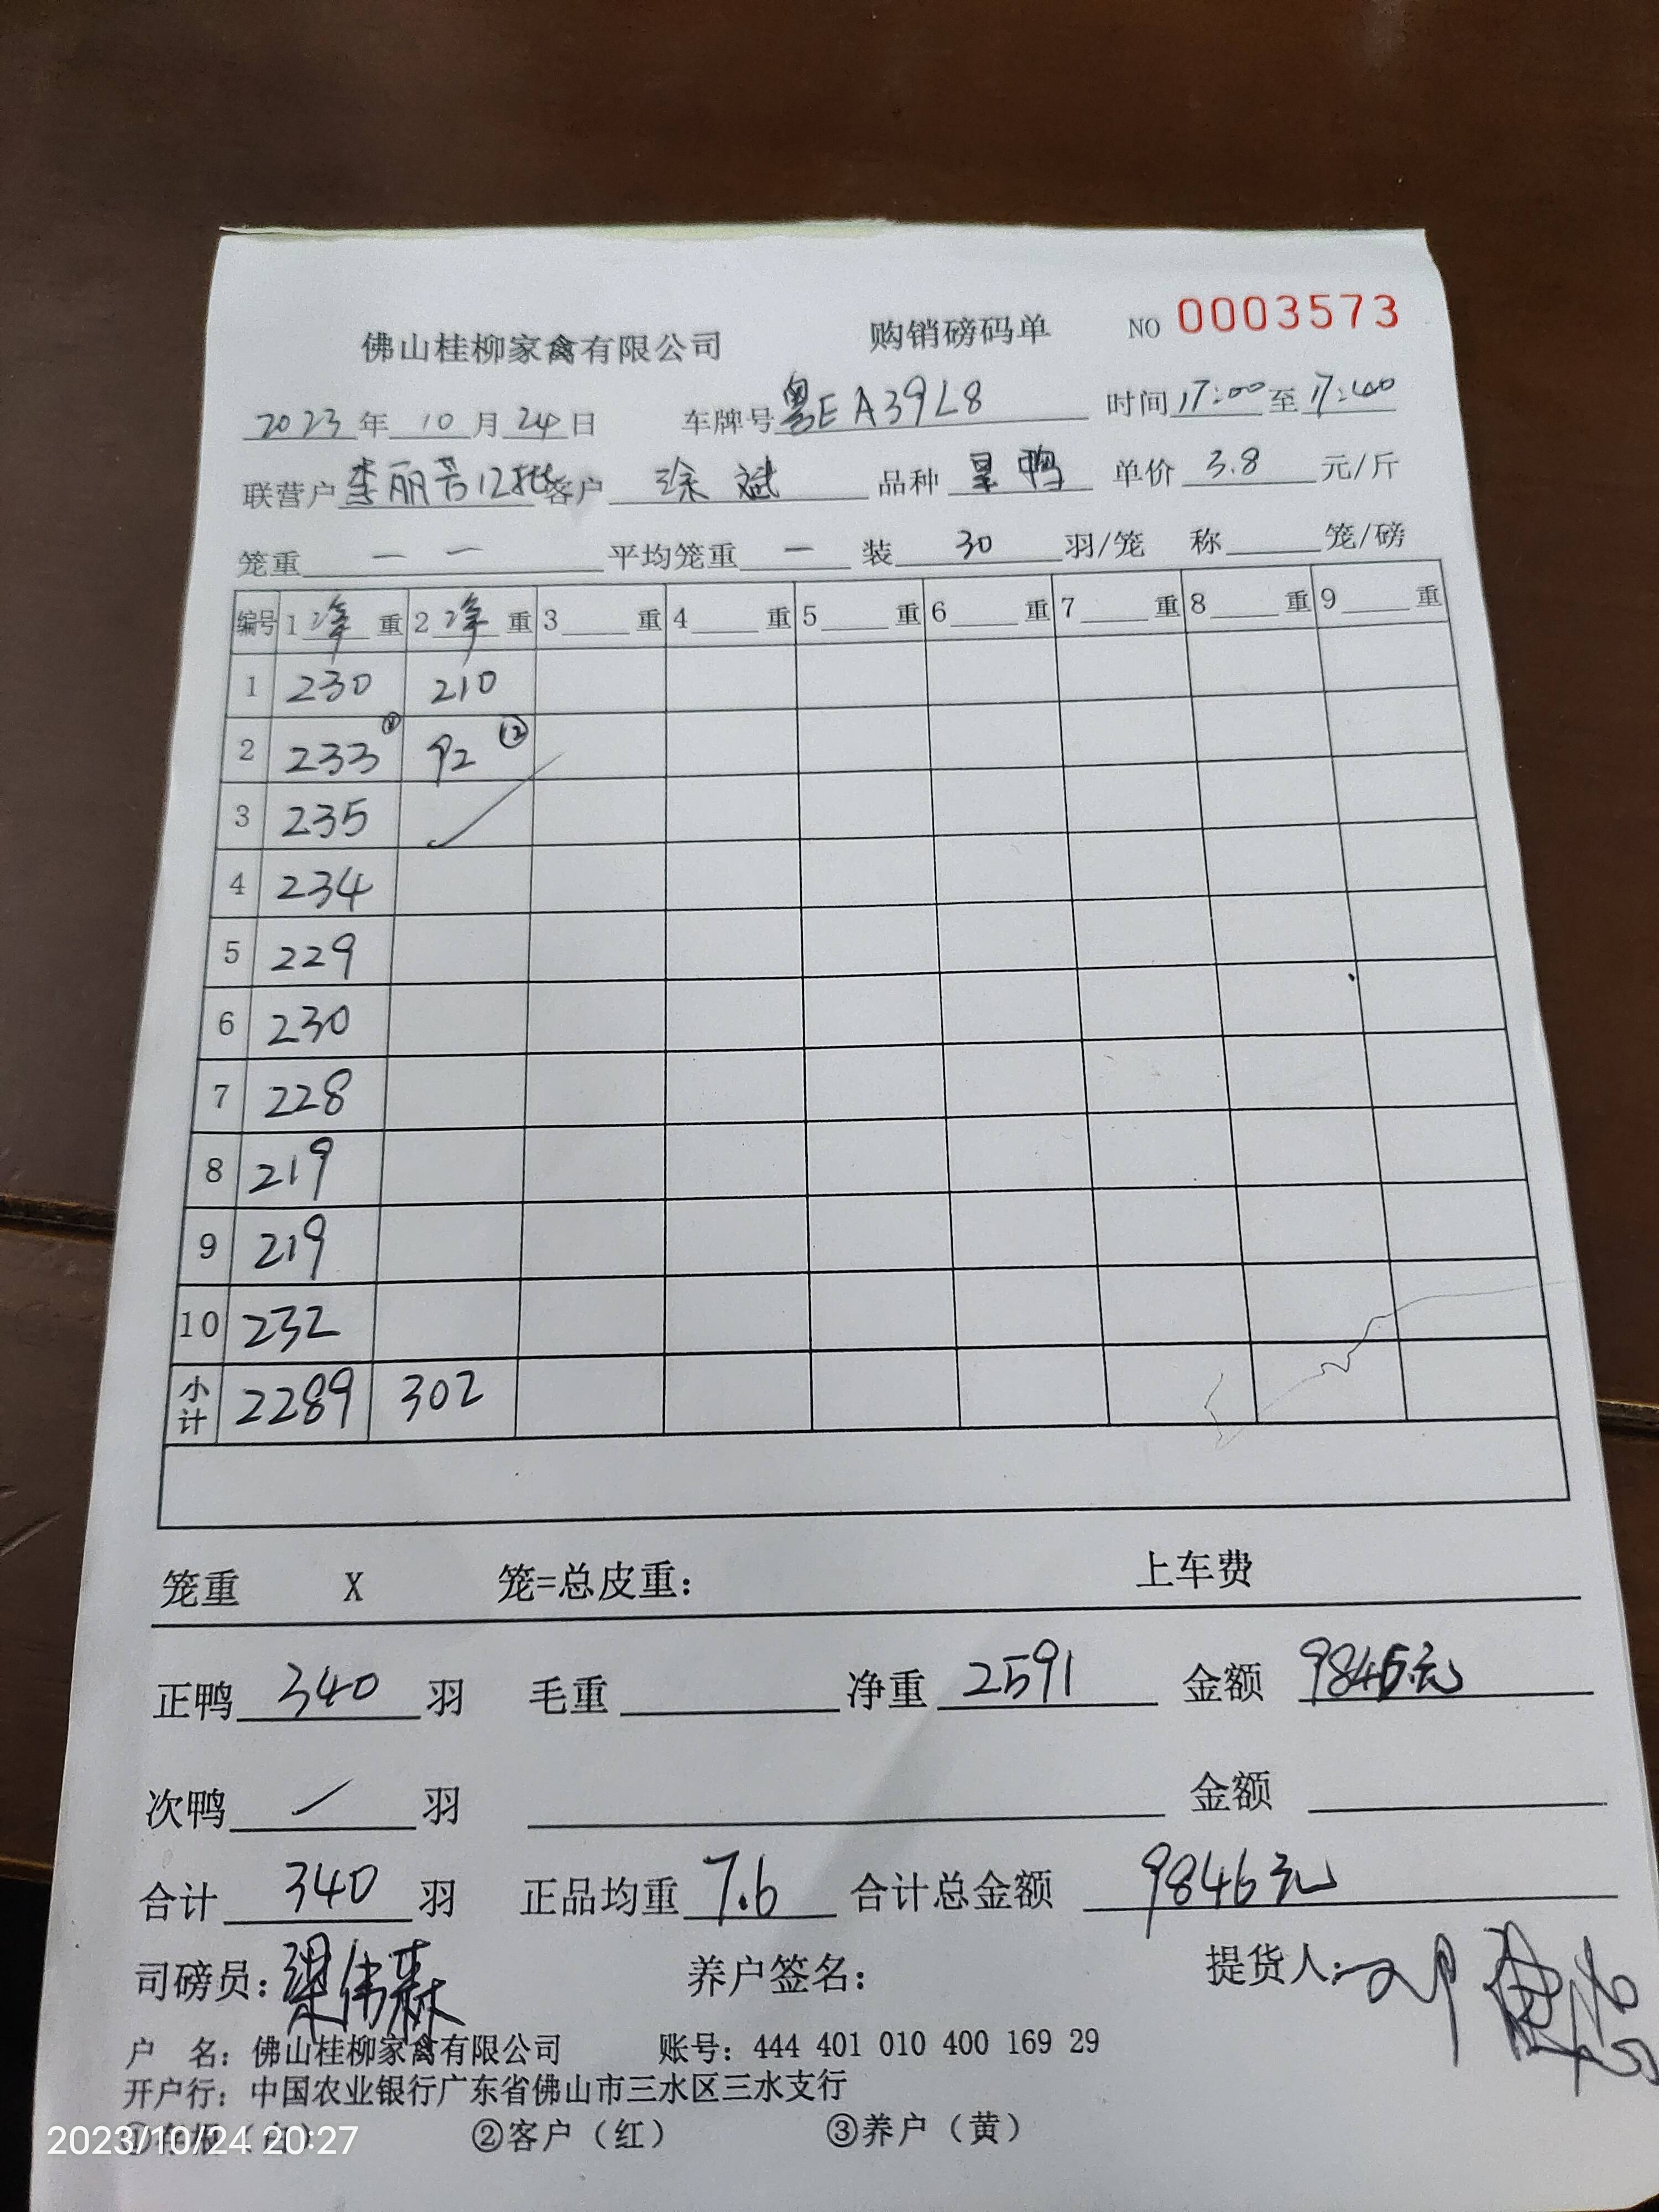 佛山桂柳家禽有限公司 购销磅码单 NO 0003573
2023年10月24日 车牌号粤EA39L8 时间17:00至17:40
联营户李丽芳12批客户 涂斌 品种 鸭 单价 3.8 元/斤
笼重 — — 平均笼重 — 装 30 羽/笼 称 笼/磅
编号 1 净 重 2 净 重 3 重 4 重 5 重 6 重 7 重 8 重 9 重
1 230 210
2 233 92 ⑫
3 235
4 234
5 229
6 230
7 228
8 219
9 219
10 232
小计 2289 302
笼重 X 笼=总皮重: 上车费
正鸭 340 羽 毛重 净重 2591 金额 9846元
次鸭 / 羽 金额
合计 340 羽 正品均重 7.6 合计总金额 9846元
司磅员:梁伟森 养户签名: 提货人:
户 名: 佛山桂柳家禽有限公司 账号: 444 401 010 400 169 29
开户行: 中国农业银行广东省佛山市三水区三水支行
② 客户 (红) ③ 养户 (黄)
2023/10/24 20:27